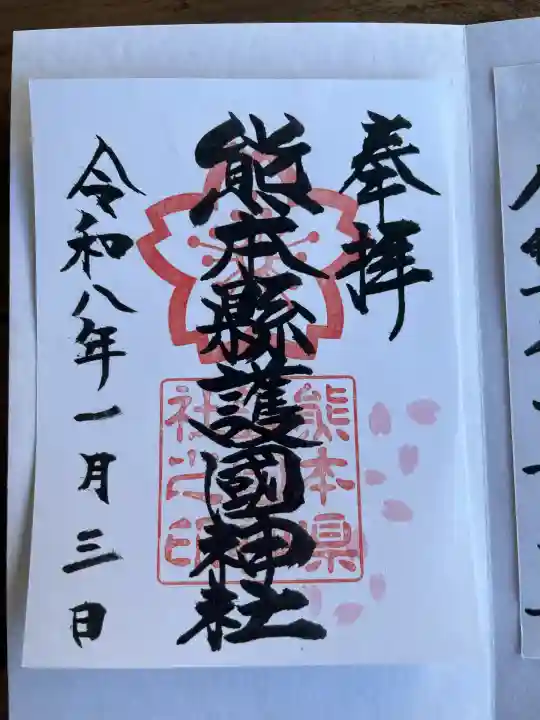 奉拝
熊本縣護國神社
令和八年一月三日
熊本県
社之印